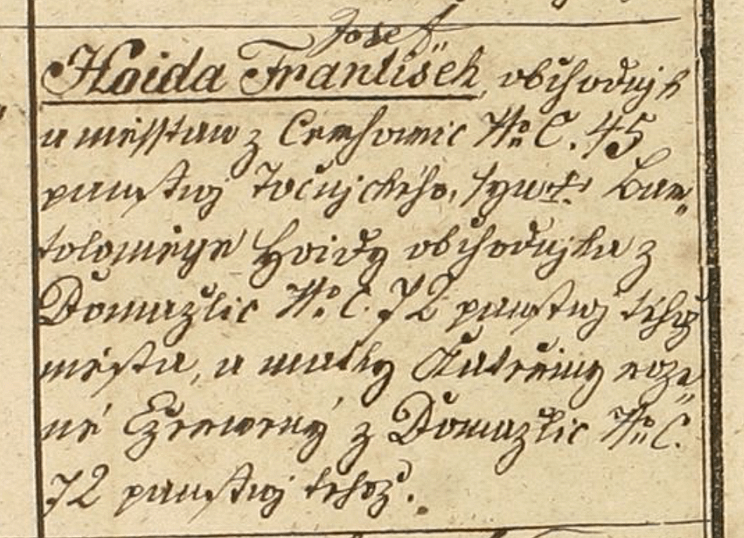 Josef
Hoida František, obchodnjk
a měsstian z Cerhowic No C. 45
panstwj Točnjckého, syn † Bar„
toloměge Hoidy obchodnjka z
Domažlic No C. 72 panstwj téhož
města, a matky Kateřiny roze„
né Czerwený z Domažlic No C.
72 panstwj téhož.